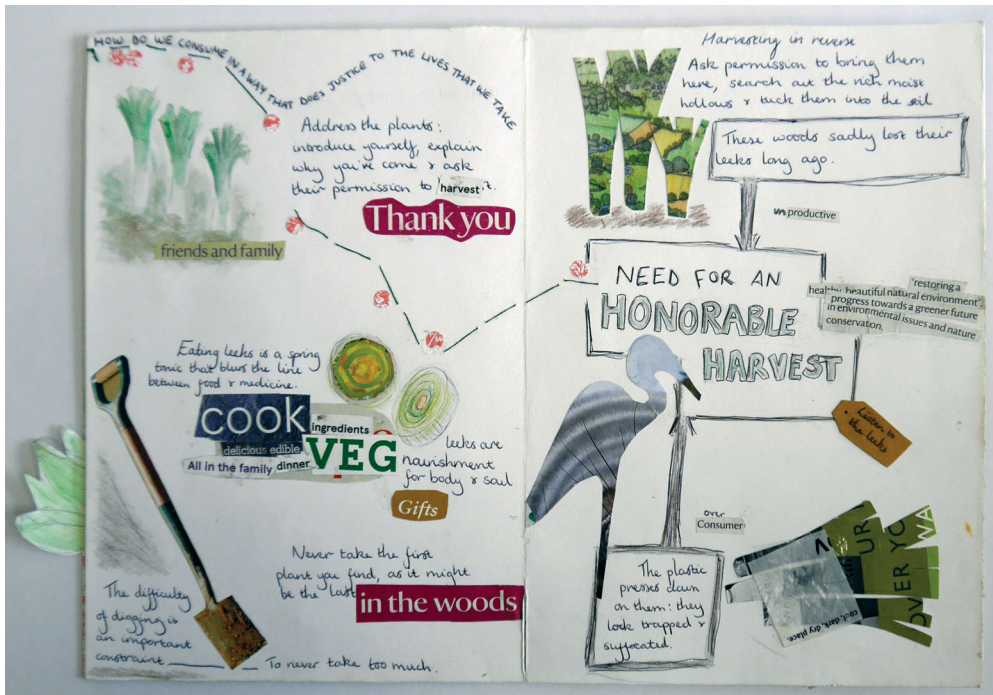 HOW DO WE CONSUME IN A WAY THAT DOES JUSTICE TO THE LIVES THAT WE TAKE
Address the plants:
introduce yourself, explain
why you've come & ask
their permission to harvest.
Thank you
friends and family
Eating leeks is a spring
tonic that blurs the line
between food & medicine.
cook
ingredients
delicious edible
VEG
All in the family dinner
leeks are
nourishment
for body & soul
Gifts
Never take the first
plant you find, as it might
be the last
in the woods
The difficulty
of digging is
an important
constraint
To never take too much.
Harvesting in reverse
Ask permission to bring them
here, search out the rich moist
hollows & tuck them into the soil
These woods sadly lost their
leeks long ago.
unproductive
NEED FOR AN
HONORABLE
HARVEST
'restoring a
healthy, beautiful natural environment'
progress towards a greener future
in environmental issues and nature
conservation.
Listen to
the leeks
over
Consumer
The plastic
presses down
on them: they
look trapped &
suffocated.
UR
OVER YO
WA
cool, dark, dry place.